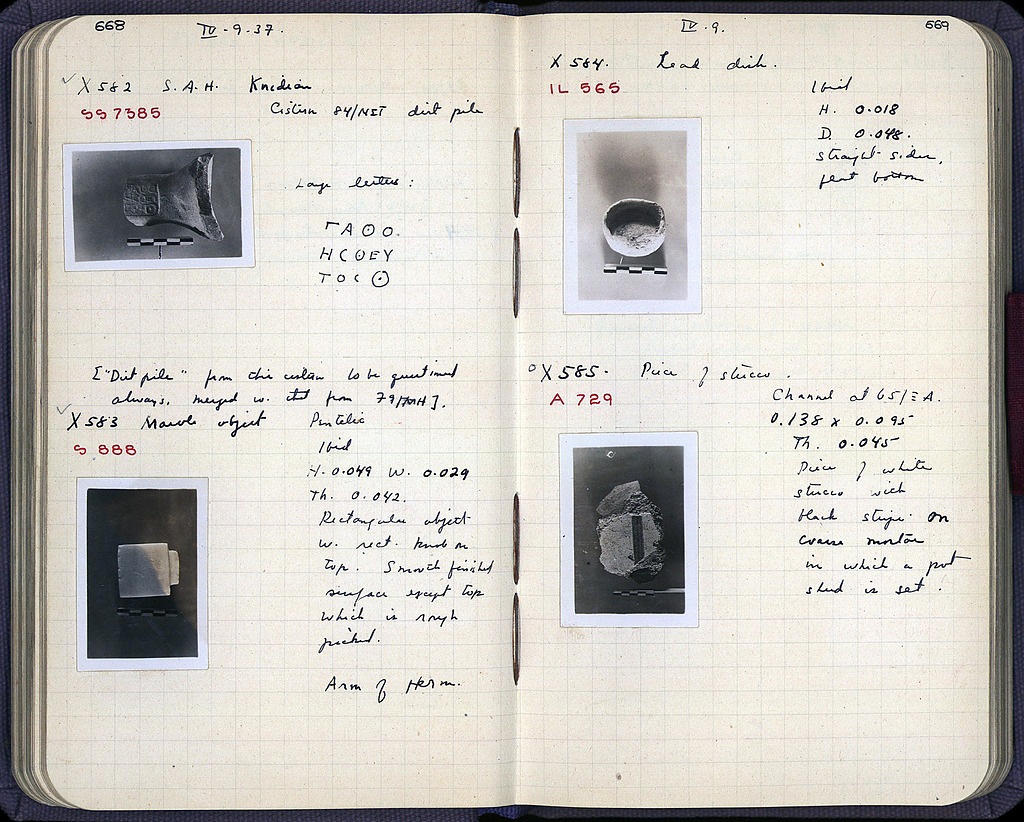 668
IV-9-37.
✓ X 582 S.A.H. Knidian
SS 7385
Cistern 84/ΝΣΤ dirt pile
Large letters:
ΓΑΘΟ.
HCΘEY
TOC ⊙
["Dirt pile" from this cistern to be questioned
always, merged w. that from 79/ H].
✓ X 583 Marble object Pentelic
S 888
Ibid
H. 0.049 W. 0.029
Th. 0.042.
Rectangular object
w. rect. knob on
top. Smooth finished
surface except top
which is rough
picked.
Arm of Herm.
669
IV.9.
X 584. Lead dish.
IL 565
Ibid
H. 0.018
D. 0.048.
straight sides,
flat bottom
° X 585. Piece of stucco.
A 729
Channel at 65/Ξ A.
0.138 x 0.095
Th. 0.045
Piece of white
stucco with
black stripe on
coarse mortar
in which a pot
sherd is set.